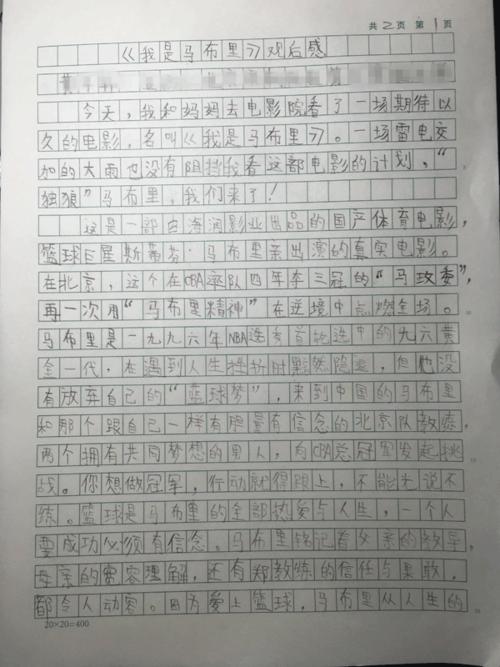 共2页 第1页
《我是马布里》观后感
今天,我和妈妈去电影院看了一场期待以
久的电影,名叫《我是马布里》。一场雷电交
加的大雨也没有阻挡我看这部电影的计划,“
独狼”马布里,我们来了!
这是一部由海润影业出品的国产体育电影,
篮球巨星斯蒂芬·马布里亲自出演的真实电影。
在北京,这个在CBA率队四年夺三冠的“马政委”,
再一次用“马布里精神”在逆境中点燃全场。
马布里是一九九六年NBA选秀首轮选中的九六黄
金一代,在遇到人生挫折时黯然隐退,但他没
有放弃自己的“篮球梦”,来到中国的马布里
和那个跟自己一样有胆量有信念的北京队教练,
两个拥有共同梦想的男人,向CBA总冠军发起挑
战。你想做冠军,行动就得跟上,不能光说不
练。篮球是马布里的全部热爱与人生,一个人
要成功必须有信念。马布里铭记着父亲的教导,
母亲的宽容理解,还有郑教练的信任与果敢,
都令人动容。因为爱上篮球,马布里从人生的
20×20=400